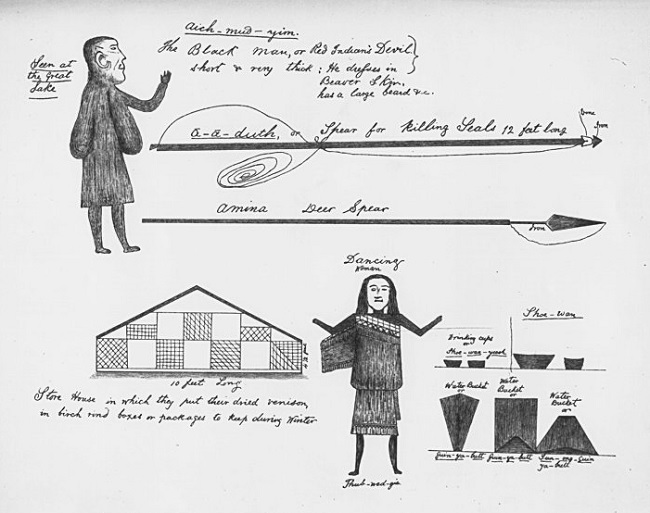 Aich-mud-yim.
The Black man, or Red Indian's Devil
short & very thick; He dresses in
Beaver Skin,
has a large beard &c.
Seen at
the Great
Lake
a-a-duth, or Spear for Killing Seals 12 feet long
Bone
Iron
Amina Deer Spear
Iron
Dancing
Woman
Thub-wed-gie
10 feet Long
Store House in which they put their dried venison
in birch rind boxes or packages to keep during Winter
Shoe-wan
Drinking cups
or
Shoe-wan-yeesh
Water Bucket
or
Guin-ya-butt
Water
Bucket
or
Guin-ya-butt
Water
Bucket
or
ya-butt